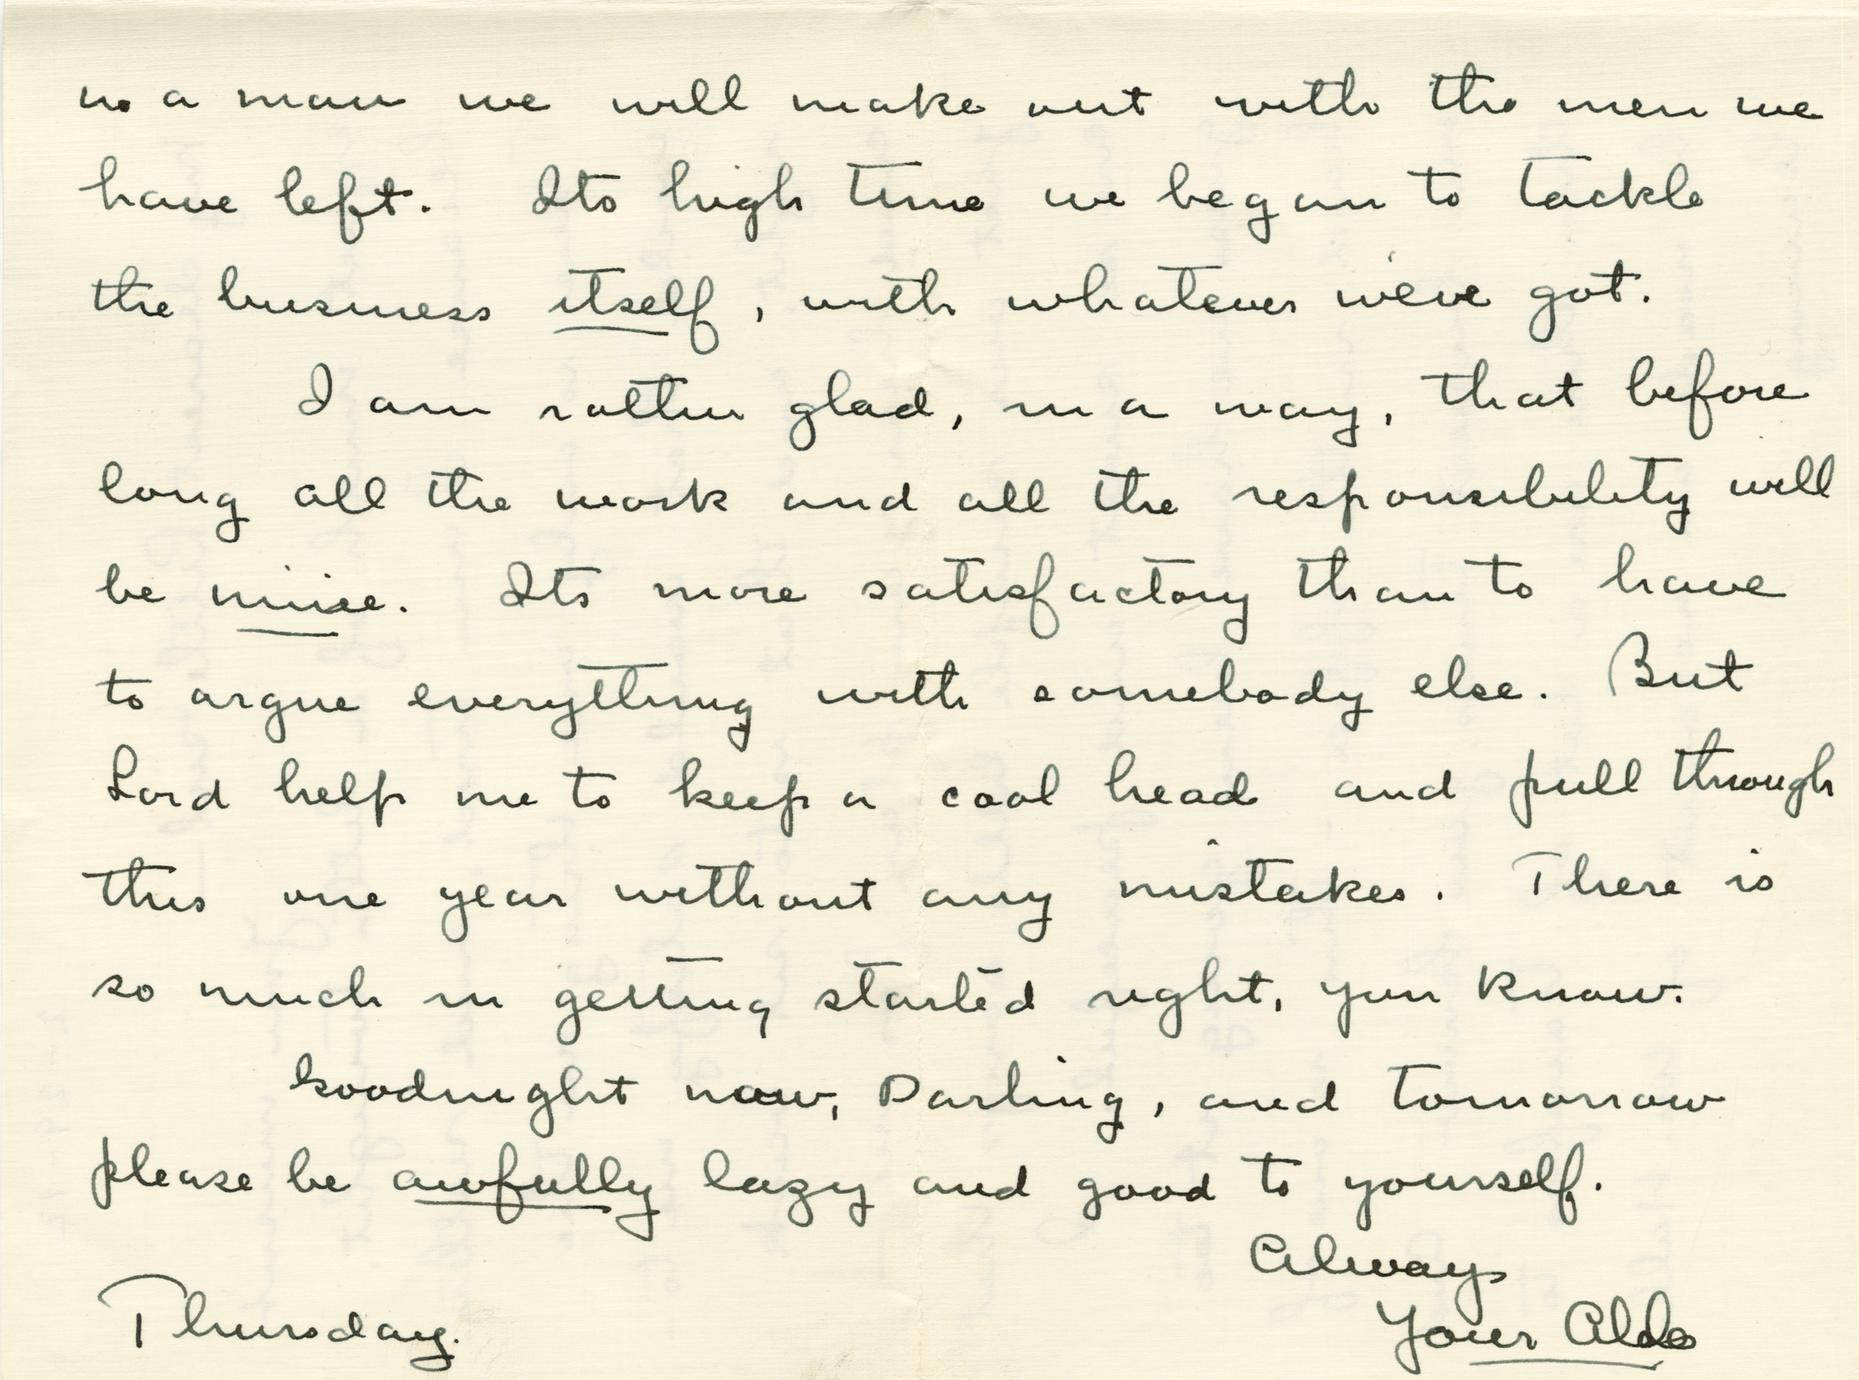 us a man we will make out with the men we
have left. Its high time we began to tackle
the business itself, with whatever we've got.
I am rather glad, in a way, that before
long all the work and all the responsibility will
be mine. Its more satisfactory than to have
to argue everything with somebody else. But
Lord help me to keep a cool head and pull through
this one year without any mistakes. There is
so much in getting started right, you know.
Goodnight now, Darling, and tomorrow
please be awfully lazy and good to yourself.
Always
Your Aldo
Thursday.